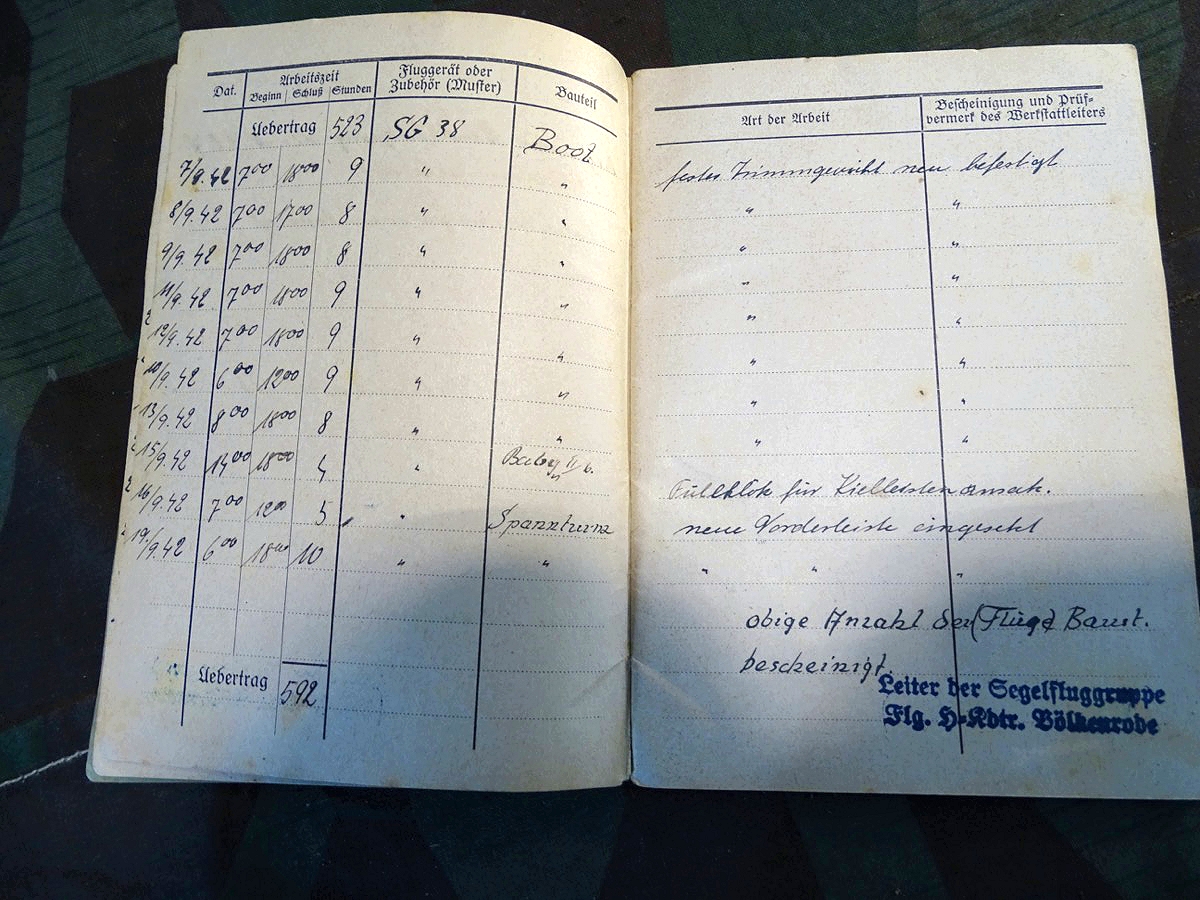 Dat. Arbeitszeit Fluggerät oder Zubehör (Muster) Bauteil
Beginn Schluß Stunden
Uebertrag 523 SG 38 Boot
7/9.42 7 00 18 00 9 " "
8/9.42 7 00 17 00 8 " "
9/9.42 7 00 18 00 8 " "
11/9.42 7 00 18 00 9 " "
12/9.42 7 00 18 00 9 " "
9.42 6 00 12 00 9 " "
13/9.42 8 00 18 00 8 " "
15/9.42 14 00 18 00 4 " Baby II b.
16/9.42 7 00 12 00 5 " Spannturm
19/9.42 6 00 18 00 10 " "
Uebertrag 592
Art der Arbeit Bescheinigung und Prüf-
vermerk des Werkstattleiters
festes Trimmgewicht neu befestigt
" "
" "
" "
" "
" "
" "
" "
für Kielleisten
neue Vorderleiste eingesetzt
" " "
obige Anzahl der (Flüge) Baust.
bescheinigt.
Leiter der Segelfluggruppe
Flg. H-Kdtr. Völkenrode